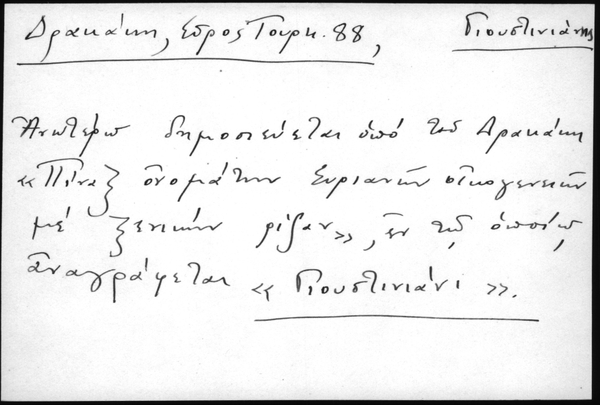 Δρακάκη, Σῦρος Τουρκ. 88, Γιουστινιάνης
Ἀνωτέρω δημοσιεύεται ὑπό τοῦ Δρακάκη
«Πίναξ ὀνομάτων Συριανῶν οἰκογενειῶν
μέ ξενικήν ρίζαν», ἐν τῷ ὁποίῳ
ἀναγράφεται «Γιουστινιάνι».